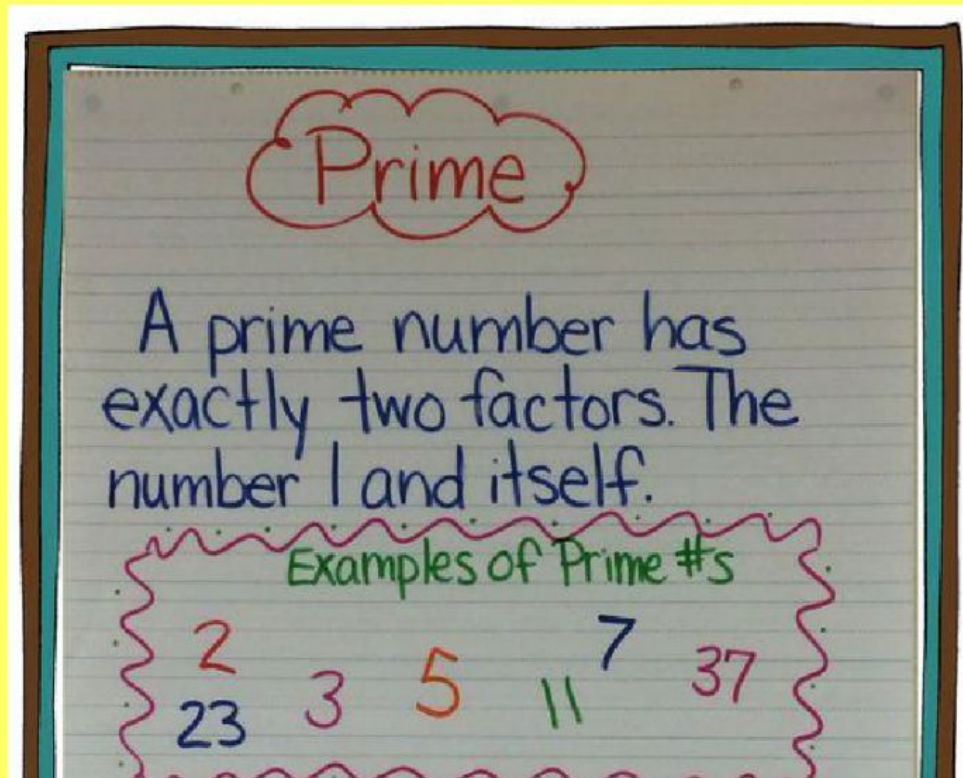 Prime
A prime number has
exactly two factors. The
number 1 and itself.
Examples of Prime #s
2 3 5 11 7 37
23